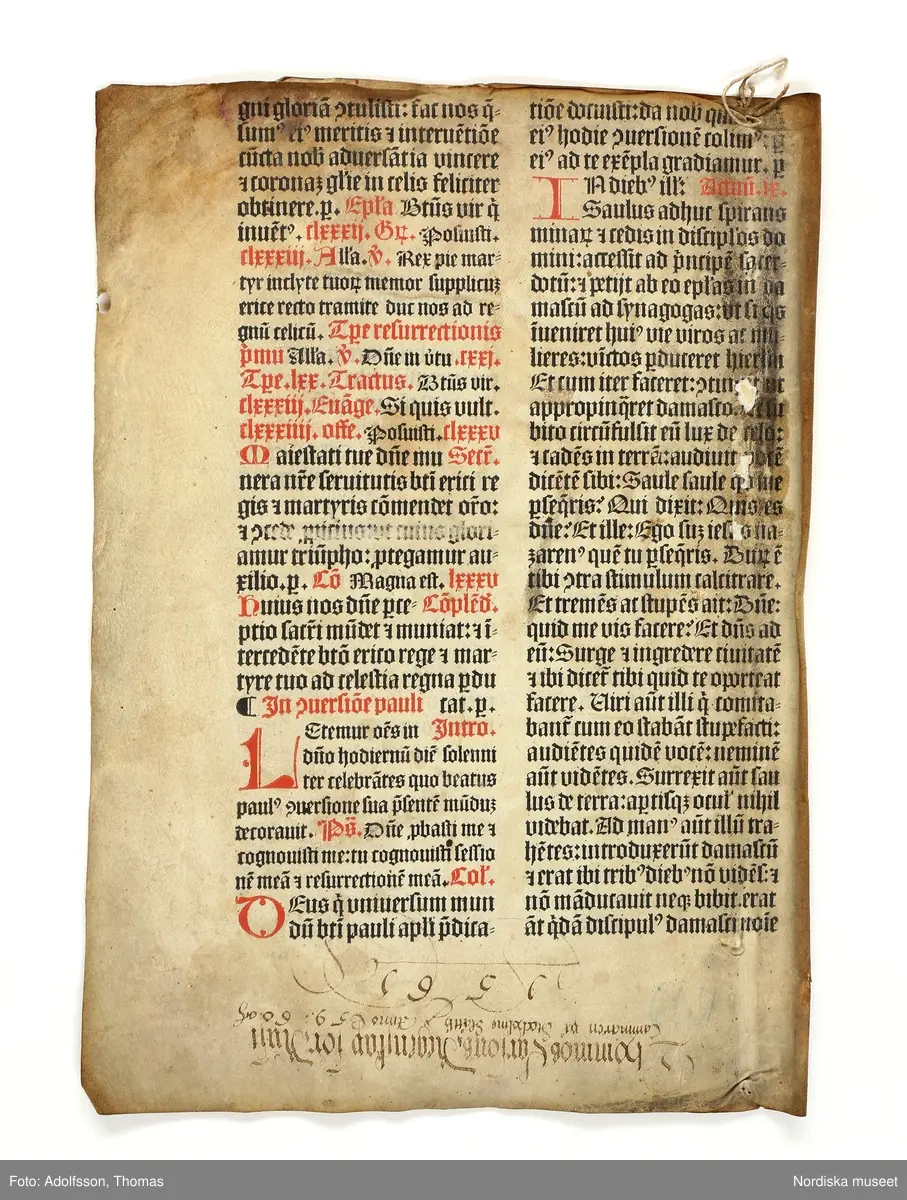 gni gloriā ꝯtulisti: fac nos q̄-
sumꝰ eiꝰ meritis ⁊ interuētiōe
cūcta nob aduersātia vincere
⁊ coronaꝫ gl̄ie in celis feliciter
obtinere. p. Epl̄a Btūs vir q̇
inuētꝰ. clxxxij. Gꝝ. Posuisti.
clxxxiij. All'a. v̇. Rex pie mar-
tyr inclyte tuoꝝ memor supplicuꝫ
erice recto tramite duc nos ad re-
gnū celicū. Tp̄e resurrectionis
ṗmū All'a. v̇. Dn̄e in v̇tu .cxxj.
Tp̄e .lxx. Tractus. Btūs vir.
clxxxiij. Euāge. Si quis vult.
clxxxiiij. offe. Posuisti. clxxxv
Maiestati tue dn̄e mu Secr̄.
nera nr̄e seruitutis bt̄i erici re
gis ⁊ martyris cōmendet or̄o:
⁊ ꝯcede cuius glori-
amur triūpho: ꝓtegamur au-
xilio. p. Cō Magna est. lxxxv
Huius nos dn̄e ꝑce- Cōplēd̄.
ptio sacr̄i mūdet ⁊ muniat: ⁊ ī-
tercedēte bt̄o erico rege ⁊ mar-
tyre tuo ad celestia regna ꝑdu
¶ In ꝯuersiōe pauli cat. p.
LEtemur oēs in Intro.
dn̄o hodiernū diē solenni
ter celebrātes quo beatus
paulꝰ ꝯuersione sua p̄sentē mūduꝫ
decorauit. Ps̄. Dn̄e ꝓbasti me ⁊
cognouisti me: tu cognouisti sessio
nē meā ⁊ resurrectionē meā. Col'.
DEus q̇ vniuersum mun
dū bt̄i pauli apl̄i p̄dica-
tiōe docuisti: da nob qui
eiꝰ hodie ꝯuersionē colimꝰ: ꝑ
eiꝰ ad te exēpla gradiamur. p
IN diebꝰ ill': Actuū. ix.
Saulus adhuc spirans
minaꝝ ⁊ cedis in discipl'os do
mini: accessit ad ṗncipē sacer-
dotū: ⁊ petijt ab eo epl'as in da
mascū ad synagogas: vt si q̇s
īueniret huiꝰ vie viros ac mu
lieres: vīctos ꝑduceret hierl̄m
Et cum iter faceret: ꝯtingit vt
appropinq̄ret damasco: et su
bito circūfulsit eū lux de celo:
⁊ cadēs in terrā: audiuit vocē
dicētē sibi: Saule saule quid me
ꝑseq̄ris? Qui dixit: Quis es
dn̄e? Et ille: Ego suꝫ iesus na-
zarenꝰ quē tu ꝑseq̄ris. Duꝝ ē
tibi ꝯtra stimulum calcitrare.
Et tremēs ac stupēs ait: Dn̄e:
quid me vis facere? Et dn̄s ad
eū: Surge ⁊ ingredere ciuitatē
⁊ ibi dicet̄ tibi quid te oporteat
facere. Uiri aut̄ illi q̇ comita-
bant̄ cum eo stabāt stupefacti:
audiētes quidē vocē: neminē
aūt vidētes. Surrexit aūt sau
lus de terra: aꝑtisqꝫ ocul' nihil
videbat. Ad manꝰ aūt illū tra-
hētes: introduxerūt damascū
⁊ erat ibi tribꝰ diebꝰ nō vidēs: ⁊
nō māducauit neqꝫ bibit. erat
āt q̇dā discipulꝰ damasci noīe
1 5 6 1
Anno 1 5 9
Foto: Adolfsson, Thomas
Nordiska museet